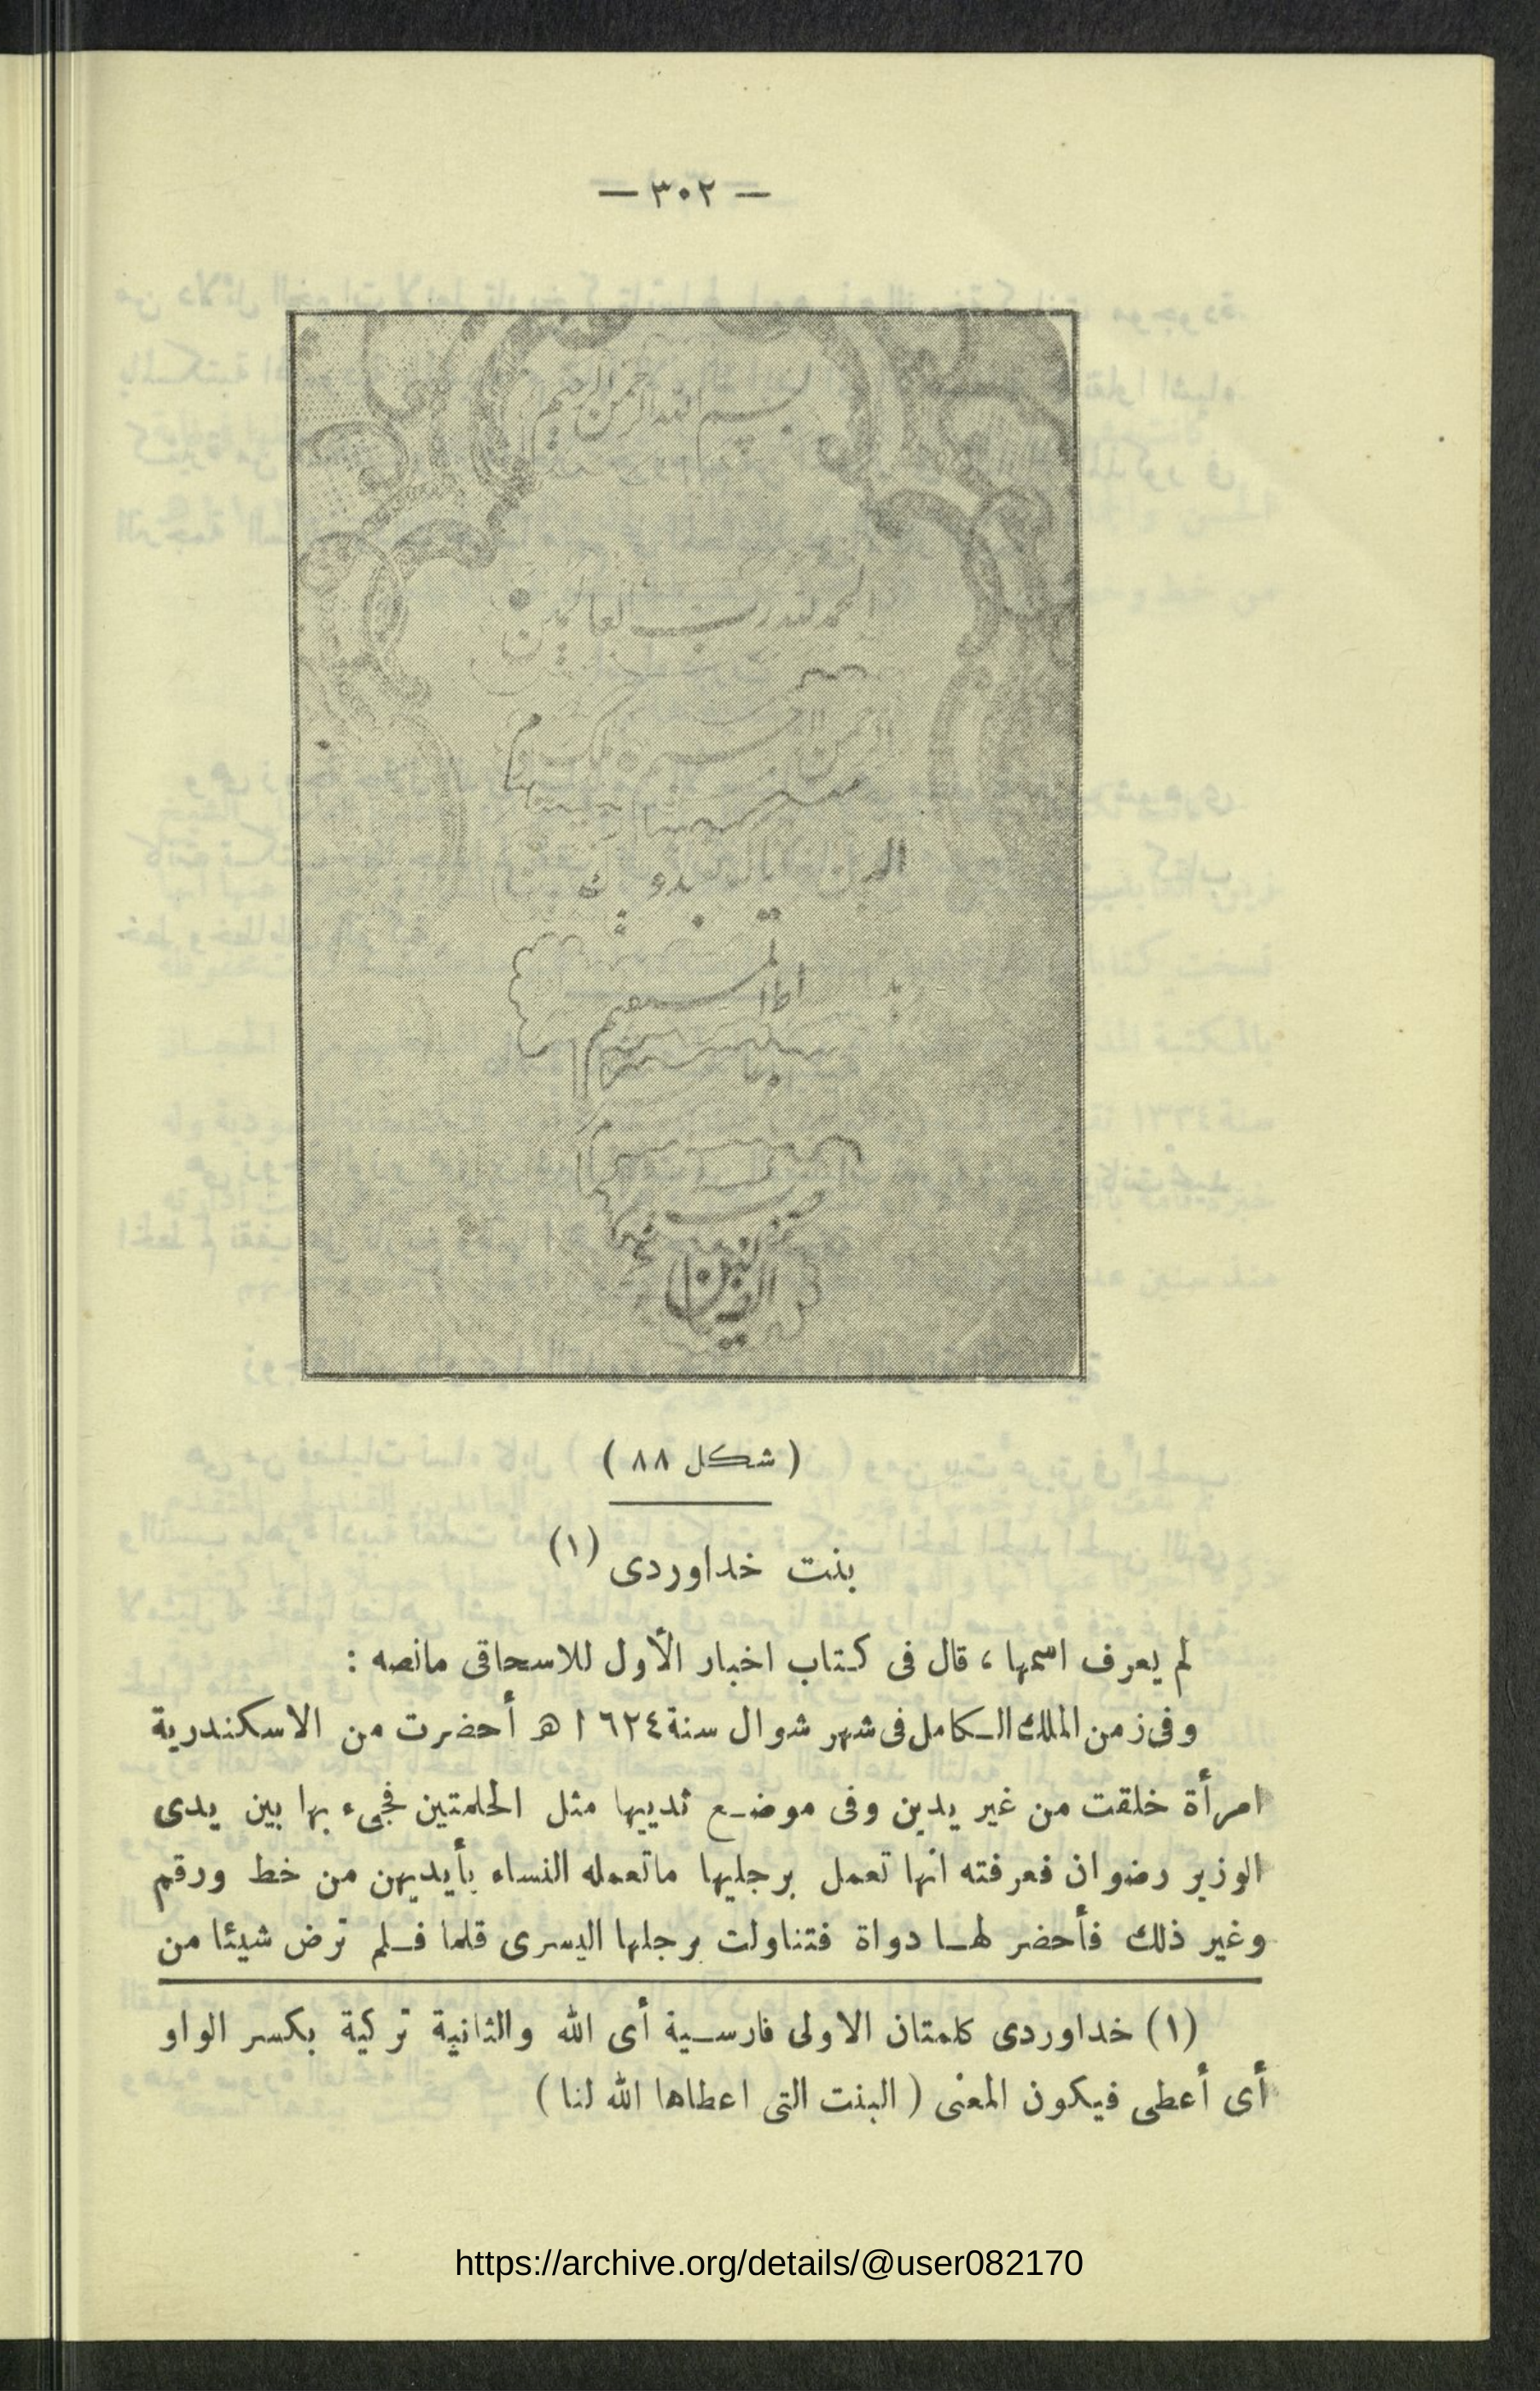 — ٣٠٢ —
بسم الله الرحمن الرحيم
الحمد لله رب العالمين
الرحمن الرحيم
( شكل ٨٨ )
بنت خداوردى (١)
لم يعرف اسمها ، قال فى كتاب اخبار الأول للاسحاقى مانصه :
وفى زمن الملك الكامل فى شهر شوال سنة ٦٢٤ ا هـ أحضرت من الاسكندرية
امرأة خلقت من غير يدين وفى موضع ثدييها مثل الحلمتين فجىء بها بين يدى
الوزير رضوان فعرفته انها تعمل برجليها ماتعمله النساء بأيديهن من خط ورقم
وغير ذلك فأحضر لها دواة فتناولت برجلها اليسرى قلما فلم ترض شيئا من
(١) خداوردى كلمتان الاولى فارسية أى الله والثانية تركية بكسر الواو
أى أعطى فيكون المعنى ( البنت التى اعطاها الله لنا )
https://archive.org/details/@user082170